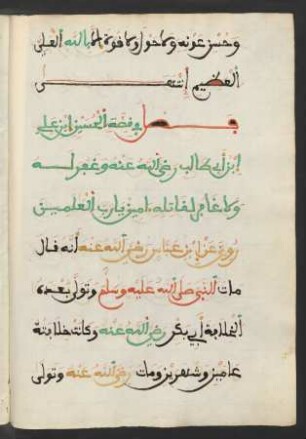 وحسن عونه ولا حول ولا قوة الا بالله العلي
العظيم انتهى
فصل في قصة الحسين ابن علي
ابن أبي طالب رضي الله عنه وغفر له
ولا غافر لقاتله امين يارب العلمين
روي عن ابن عباس رضي الله عنه أنه قال
مات النبي صلى الله عليه وسلم وتولى بعده
الخلافة أبي بكر رضي الله عنه وكانت خلافته
عامين وشهرين ومات رضي الله عنه وتولى